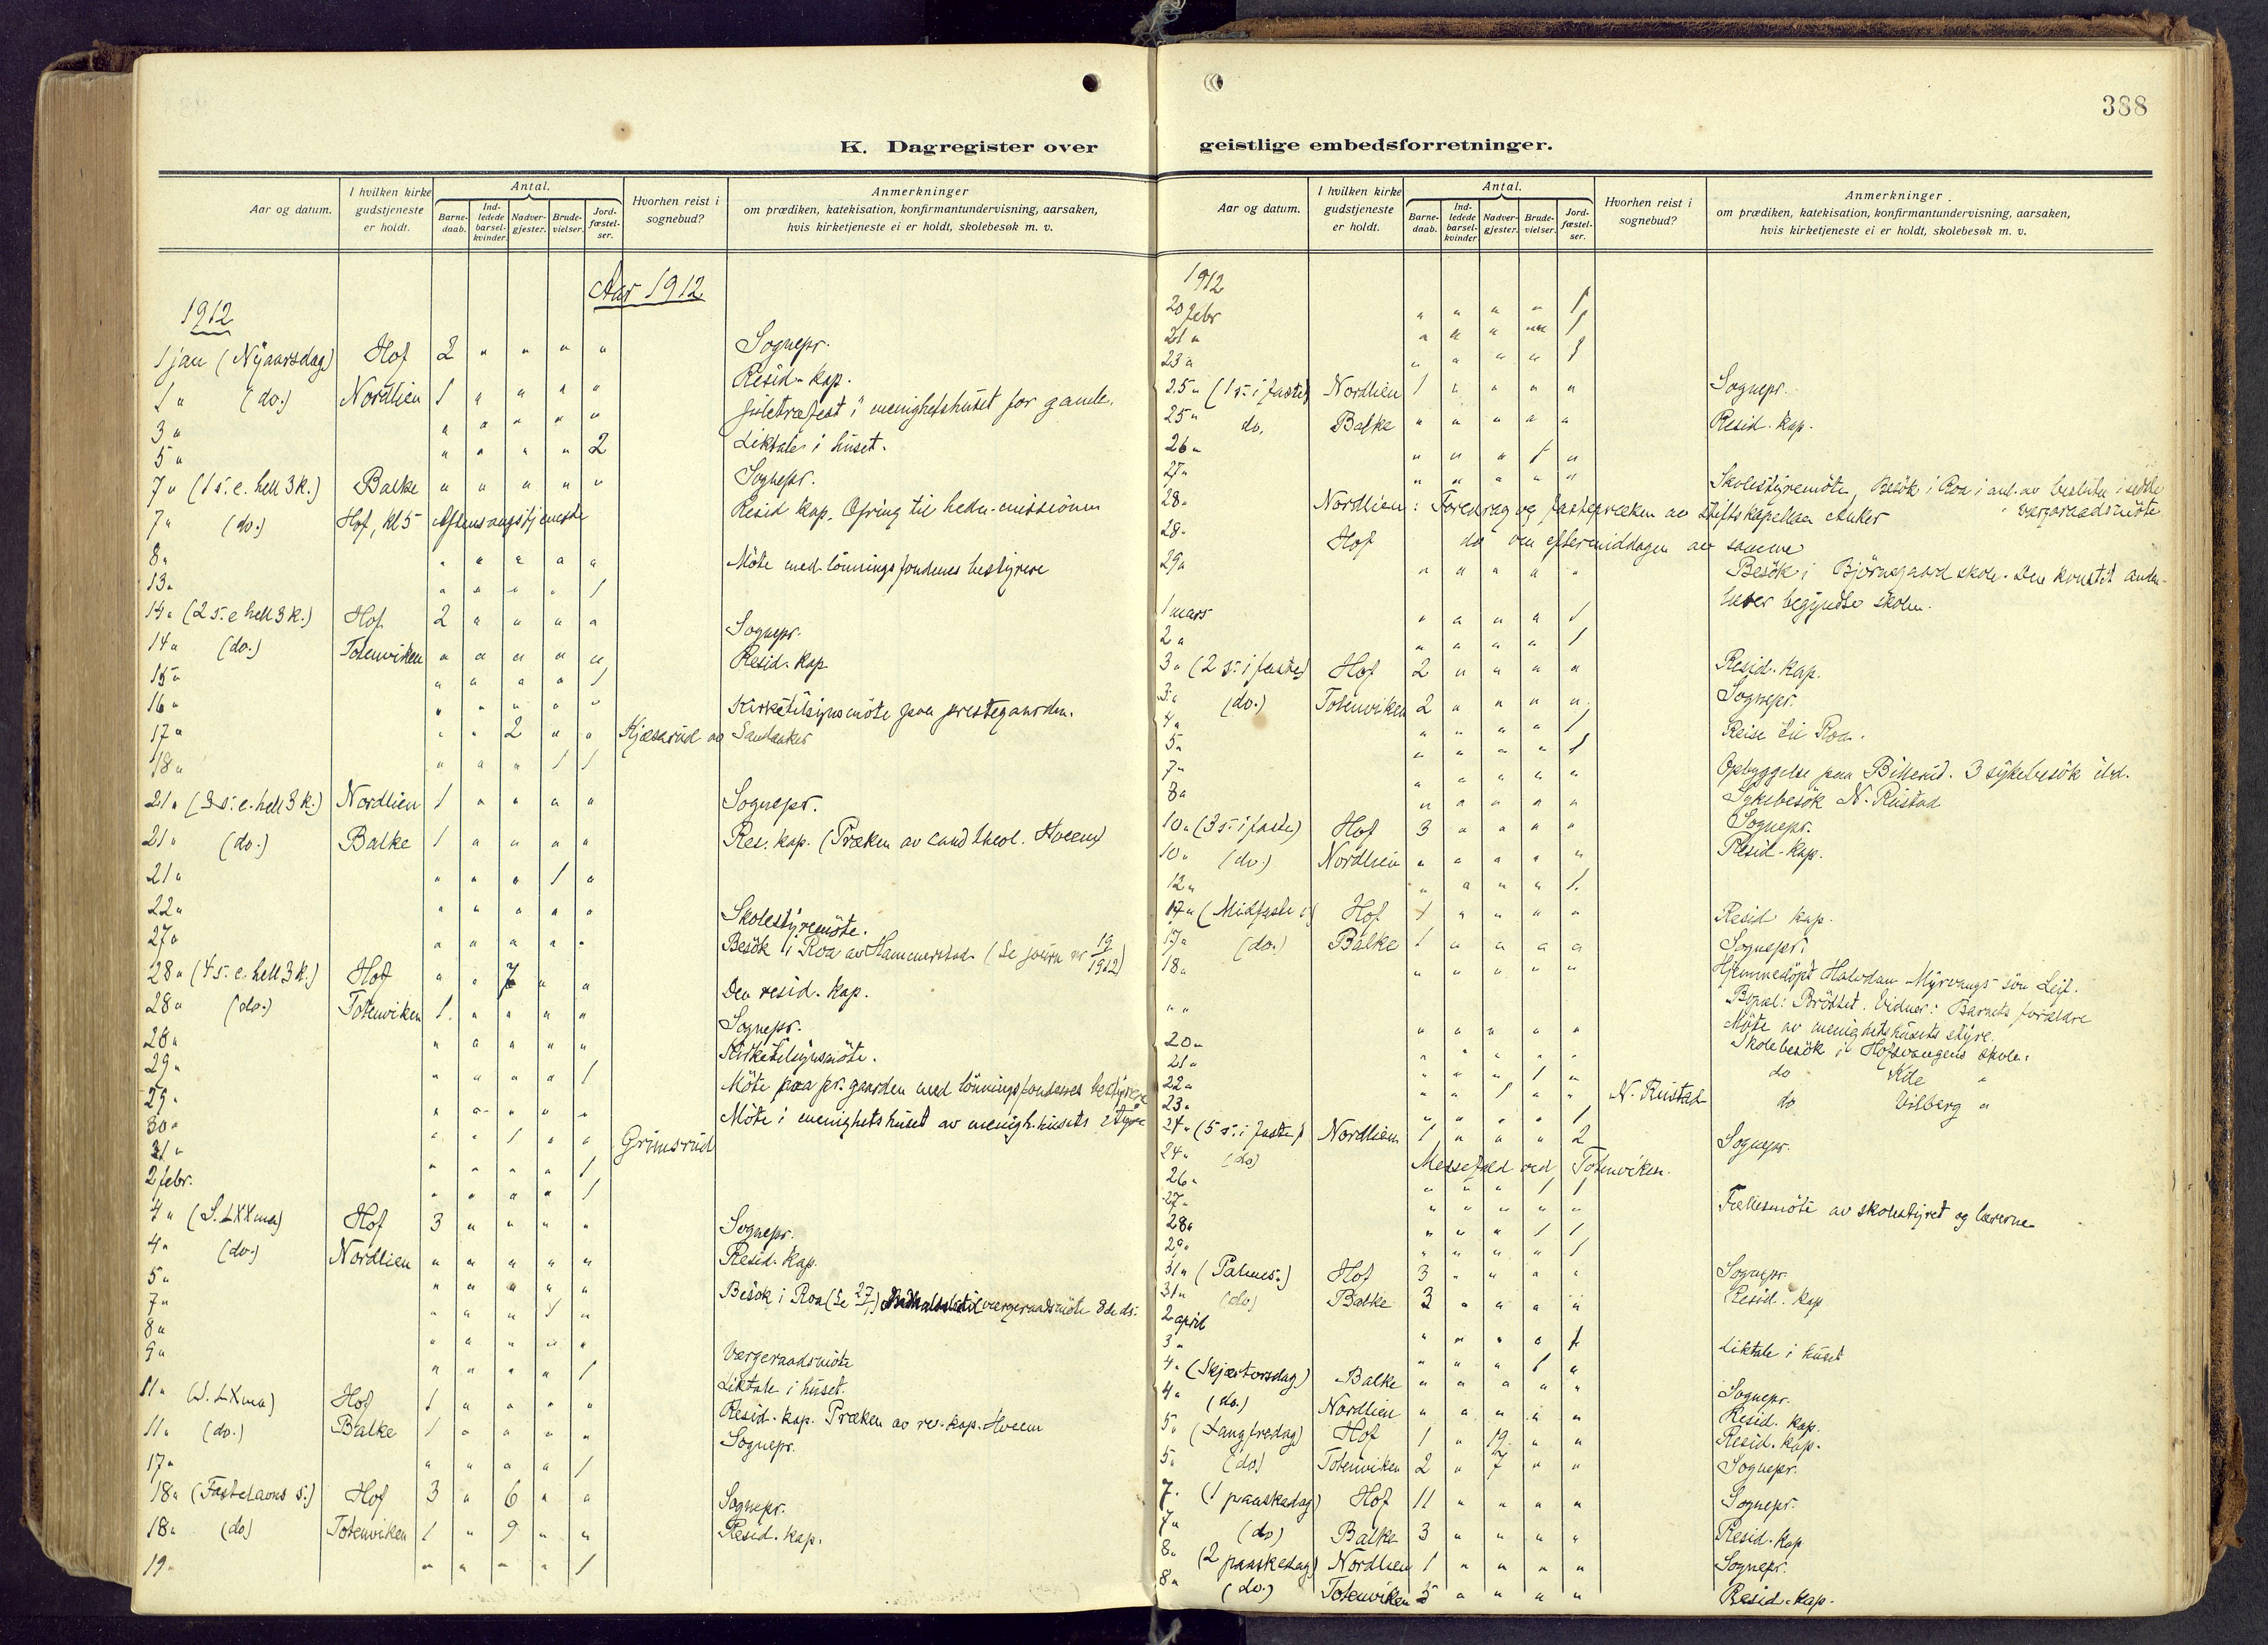 388
K. Dagregister over geistlige embedsforretninger.
Aar og datum. I hvilken kirke gudstjeneste er holdt. Antal. Barnedaab. Indledede barselkvinder. Nadvergjester. Brudevielser. Jordfæstelser. Hvorhen reist i sognebud? Anmerkninger om prædiken, katekisation, konfirmantundervisning, aarsaken, hvis kirketjeneste ei er holdt, skolebesøk m. v.
Aar 1912
1912
1 jan (Nyaarsdag) Hof 2 " " " " Sognepr.
1 " (do.) Nordlien 1 " " " " Resid. kap.
3 " " " " " " Juletræfest i menighetshuset for gamle.
5 " " " " " 2 Liktale i huset.
7 " (1 s. e. hell 3 k.) Balke " " " " " Sognepr.
7 " (do.) Hof, kl 5 Aftensangstjeneste Resid kap. Ofring til hedn. missionen
8 " " " " " " Möte med lönningsfondenes bestyrere
13 " " " " " 1
14 " (2 s. e hell 3 k.) Hof 2 " " " " Sognepr.
14 " (do.) Totenviken " " " " " Resid. kap
15 " " " " " 1
16 " " " " " " Kirketilsynsmöte paa prestegaarden.
17 " " " 2 " " Kjæsarud av Sandaker
18 " " " " 1 1
21 " (3 s. e. hell 3 k.) Nordlien 1 " " " " Sognepr.
21 " (do.) Balke 1 " " " " Res. kap. (Præken av cand theol. Hveem)
21 " " " " 1 "
22 " " " " " " Skolestyremöte.
27 " " " " " " Besök i Roa av Hammerstad (Se journ nr 19/1912)
28 " (4 s. e. hell 3 k.) Hof " " 7 " " Den resid. kap.
28 " (do.) Totenviken 1 " " " " Sognepr.
28 " " " " " " Kirketilsynsmöte.
29 " " " " " 1
29 " " " " " " Möte paa pr. gaarden med lönningsfondenes bestyrere
30 " " " 1 " " Grimsrud Möte i menighetshuset av menigh. husets styre
31 " " " " " 1
2 febr. " " " " 1
4 " (S. LXXma) Hof 3 " " " " Sognepr.
4 " (do.) Nordlien " " " " " Resid. kap.
5 " " " " " " Besök i Roa (se 27/1) værgeraadsmöte 8de ds.
7 " " " " 1 "
8 " " " " " " Værgeraadsmöte
9 " " " " " 1 Liktale i huset.
11 " (S. LXma) Hof 1 " " " " Resid. kap. Præken av res. kap. Hveem
11 " (do.) Balke 1 " " " " Sognepr.
17 " " " " " 1
18 " (Fastelavns s.) Hof 3 " 6 " " Sognepr.
18 " (do) Totenviken 1 " 9 " " Resid. kap.
19 " " " " " 1
Aar og datum. I hvilken kirke gudstjeneste er holdt. Antal. Barnedaab. Indledede barselkvinder. Nadvergjester. Brudevielser. Jordfæstelser. Hvorhen reist i sognebud? Anmerkninger om prædiken, katekisation, konfirmantundervisning, aarsaken, hvis kirketjeneste ei er holdt, skolebesøk m. v.
1912
20 febr " " " " 1
21 " " " " " 1
23 " " " " " 1
25 " (1 s. i faste) Nordlien 1 " " " " Sognepr.
25 " do. Balke " " " " " Resid. kap.
26 " " " " 1 "
27 " " " " " " Skolestyremöte, Besök i Roa i anl. av
værgeraadsmöte
28 " Nordlien: Foredrag og fastepræken av Stiftskapellan Anker
28 " Hof do om eftermiddagen av samme
29 " " " " " " Besök i Björnsgaard skole. Den
begyndte skolen.
1 mars " " " " 1
2 " " " " " 1
3 " (2 s. i faste) Hof 2 " " " " Resid. kap.
3 " (do.) Totenviken 2 " " " " Sognepr.
4 " " " " " 1 Reise til Roa.
5 " " " " " 1
7 " " " " " " Opbyggelse paa Billerud. 3 sykebesök
8 " " " " " " Sykebesök N. Rustad
10 " (3 s. i faste) Hof 3 " " " " Sognepr.
10 " (do.) Nordlien " " " " " Resid. kap.
12 " " " " " 1.
17 " (Midfaste s) Hof 1 " " " " Resid kap.
17 " (do.) Balke 1 " " " " Sognepr.
18 " " " " " " Hjemmedöpt Halvdan Myrvangs sön Leif.
" " Bopæl: Vidner: Barnets forældre
" " " " " Möte av menighetshusets styre.
20 " " " " " " Skolebesök i Hofsvangens skole.
21 " " " " 1 " do Kile "
22 " " " 1 " " N. Rustad do Vilberg "
23 " " " " " 1
24 " (5 s. i faste) Nordlien 1 " " " 2 Sognepr.
24 " (do) Messefald ved Totenviken.
26 " " " " 1 1
27 " " " " " " Fællesmöte av skolestyret og lærerne
28 " " " " 1 1
29 " " " " " 1
31 " (Palmes.) Hof 3 " " " " Sognepr
31 " (do) Balke 3 " " " " Resid. kap
2 april " " " " 1
3 " " " " 1 " Liktale i huset
4 " (Skjærtorsdag) Balke " " " " " Sognepr.
4 " (do.) Nordlien " " " " " Resid. kap.
5 " (Langfredag) Hof 1 " 19 " " Resid. kap.
5 " (do.) Totenviken 2 " 7 " " Sognepr.
7 " (1 paaskedag) Hof 11 " " " " Sognepr.
7 " (do) Balke 3 " " " " Resid. kap
8 " (2 paaskedag) Nordlien 1 " " " " Sognepr.
8 " (do.) Totenviken 5 " " " " Resid. kap.